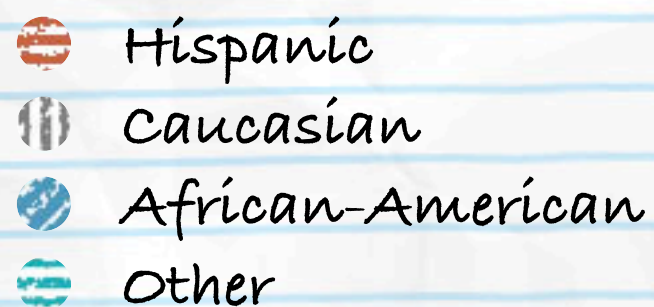 Hispanic
Caucasian
African-American
Other